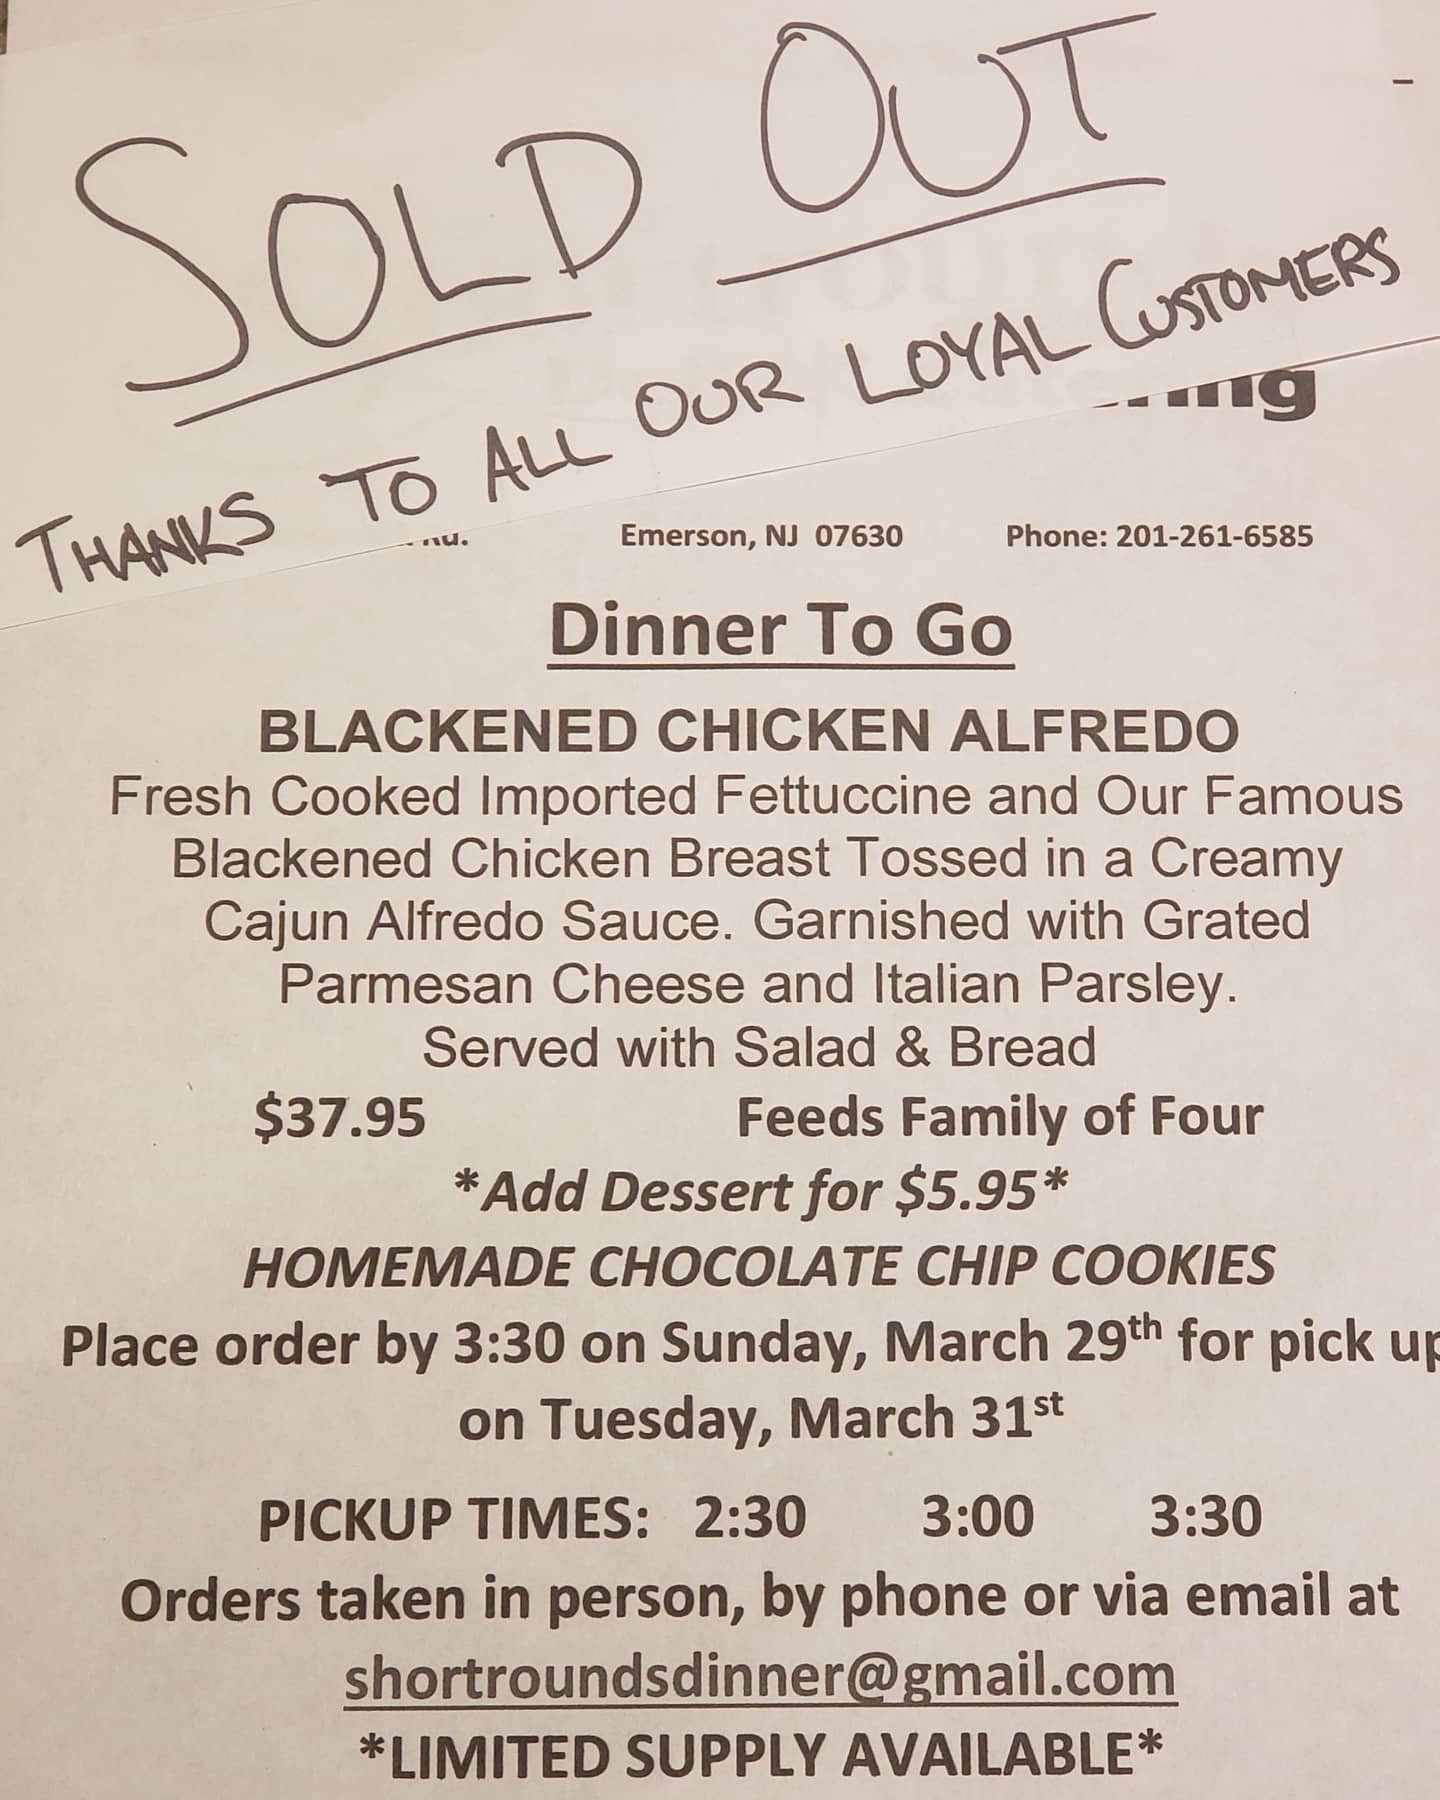 SOLD OUT
THANKS TO ALL OUR LOYAL CUSTOMERS
Emerson, NJ 07630 Phone: 201-261-6585
Dinner To Go
BLACKENED CHICKEN ALFREDO
Fresh Cooked Imported Fettuccine and Our Famous
Blackened Chicken Breast Tossed in a Creamy
Cajun Alfredo Sauce. Garnished with Grated
Parmesan Cheese and Italian Parsley.
Served with Salad & Bread
$37.95 Feeds Family of Four
*Add Dessert for $5.95*
HOMEMADE CHOCOLATE CHIP COOKIES
Place order by 3:30 on Sunday, March 29th for pick up
on Tuesday, March 31st
PICKUP TIMES: 2:30 3:00 3:30
Orders taken in person, by phone or via email at
shortroundsdinner@gmail.com
*LIMITED SUPPLY AVAILABLE*